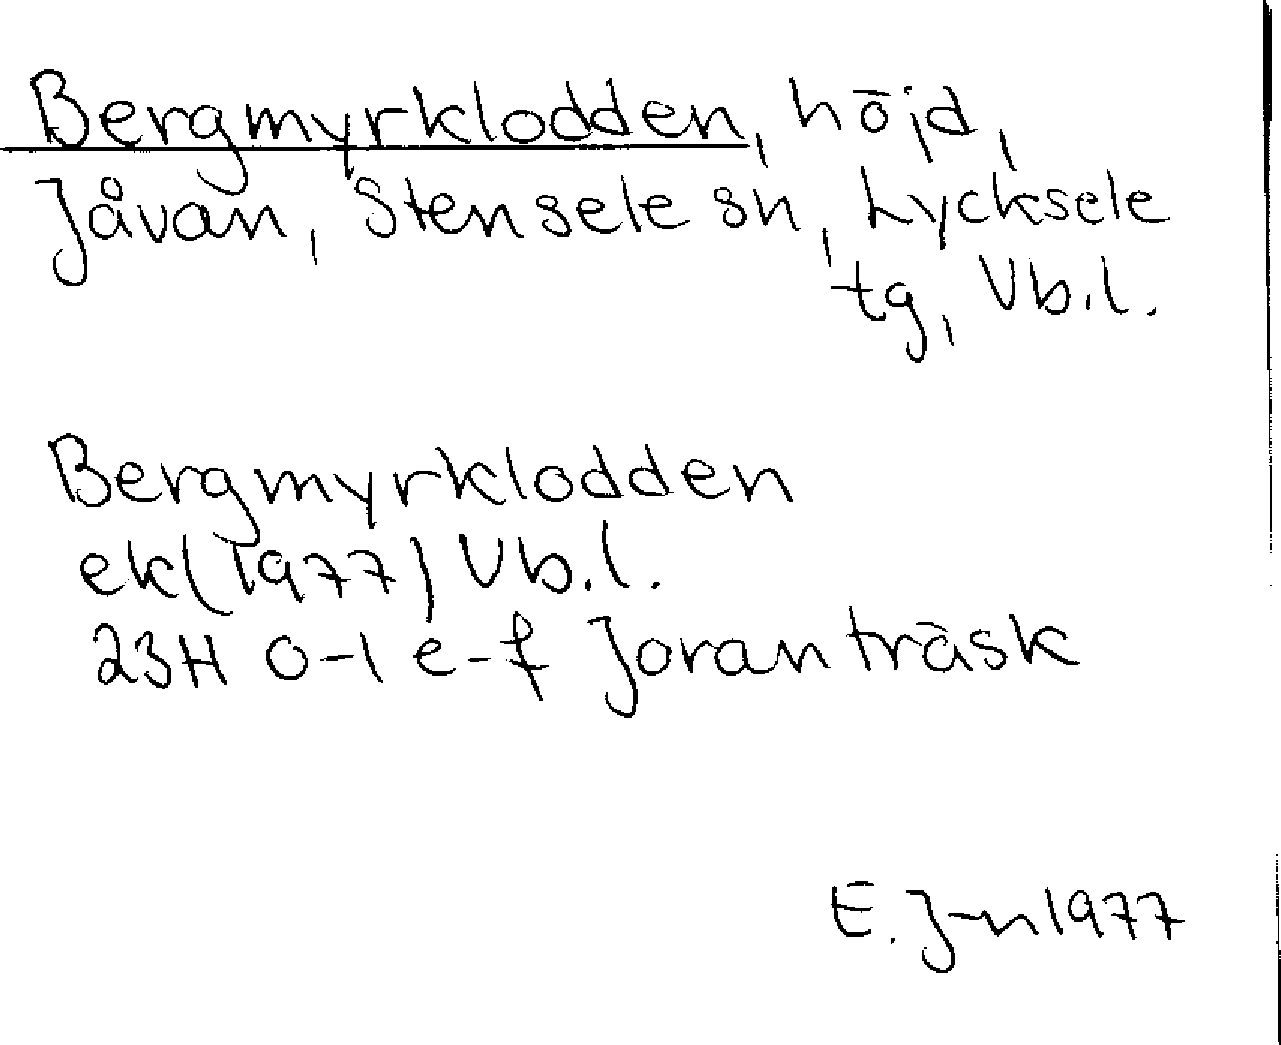 Bergmyrklodden, höjd,
Jåvan, Stensele sn, Lycksele
tg, Vb.l.
Bergmyrklodden
ek(1977) Vb.l.
23H 0-1 e-f Joranträsk
E. J-n 1977